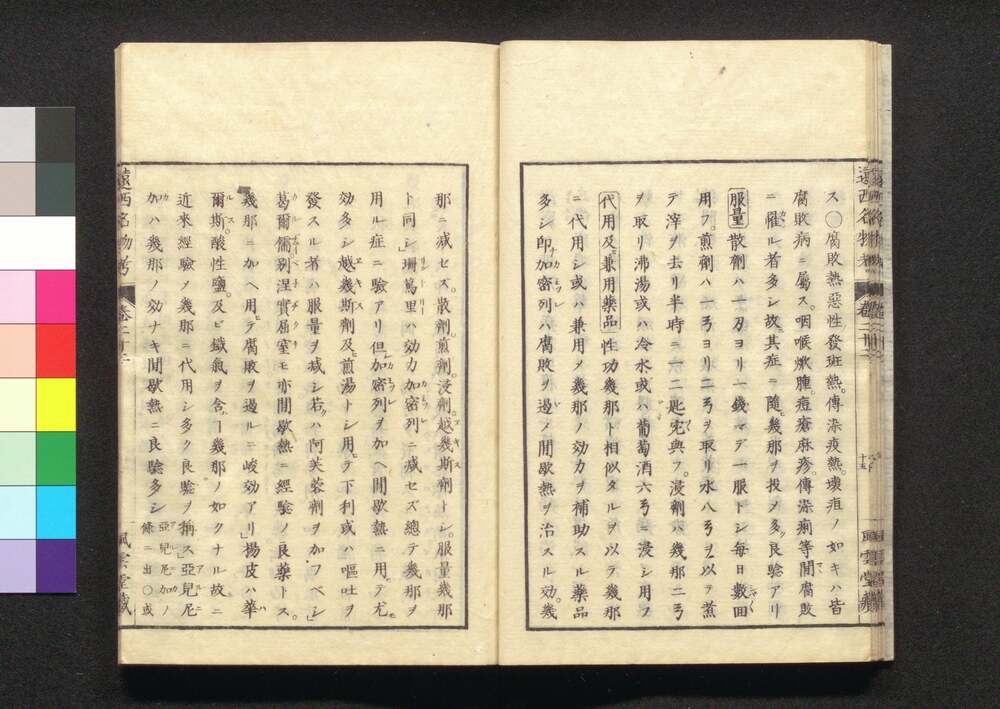 ス〇腐敗熱惡性發斑熱。傳染疫熱。壊疽ノ如キハ皆
腐敗病ニ屬ス。咽喉焮腫。痘瘡麻疹。傳染痢等間腐敗
ニ罹ル者多シ故ニ其症ニ隨ヒ幾那ヲ投メ多ク良驗アリ
服量 散劑ハ一刃ヨリ一錢マデ一服トシ毎日數回
用フ。煎劑ハ一弓ヨリ二弓ヲ取リ水八弓ヲ以テ煮
テ滓ヲ去リ半時ニ一二匙宛與フ。浸劑ハ幾那二弓
ヲ取リ沸湯或ハ冷水或ハ葡萄酒六弓ニ浸シ用フ
代用及ビ兼用藥品 性功幾那ト相似タルヲ以テ幾那
ニ代用シ或ハ兼用メ幾那ノ効力ヲ補助スル藥品
多シ即加密列ハ腐敗ヲ遏メ間歇熱ヲ治スル効。幾
遠西名物考 卷二十三
十五
風雲堂藏
那ニ減セズ。散劑。煎劑。浸劑。越幾斯劑トシ。服量幾那
ト同シ」珊篤里ハ効力加密列ニ減セズ總テ幾那ヲ
用ル症ニ驗アリ但加密列ヲ加ヘ間歇熱ニ用テ尤
効多シ越幾斯劑及煎湯トシ用テ下利或ハ嘔吐ヲ
發スル者ハ服量ヲ減シ若クハ阿芙蓉劑ヲ加フベシ」
葛爾儒別涅實屈室モ亦間歇熱ニ經驗ノ良藥トス。
幾那ニ加ヘ用テ腐敗ヲ遏ルニ峻効アリ」楊皮ハ華
爾斯。酸性鹽。及ビ鐵氣ヲ含ー幾那ノ如クナル故ニ
近來經驗メ幾那ニ代用シ多ク良驗ヲ稱ス」亞兒尼
加ハ幾那ノ効ナキ間歇熱ニ良驗多シ 亞兒尼加ノ條ニ出〇或
遠西名物考 卷二十三
風雲堂藏